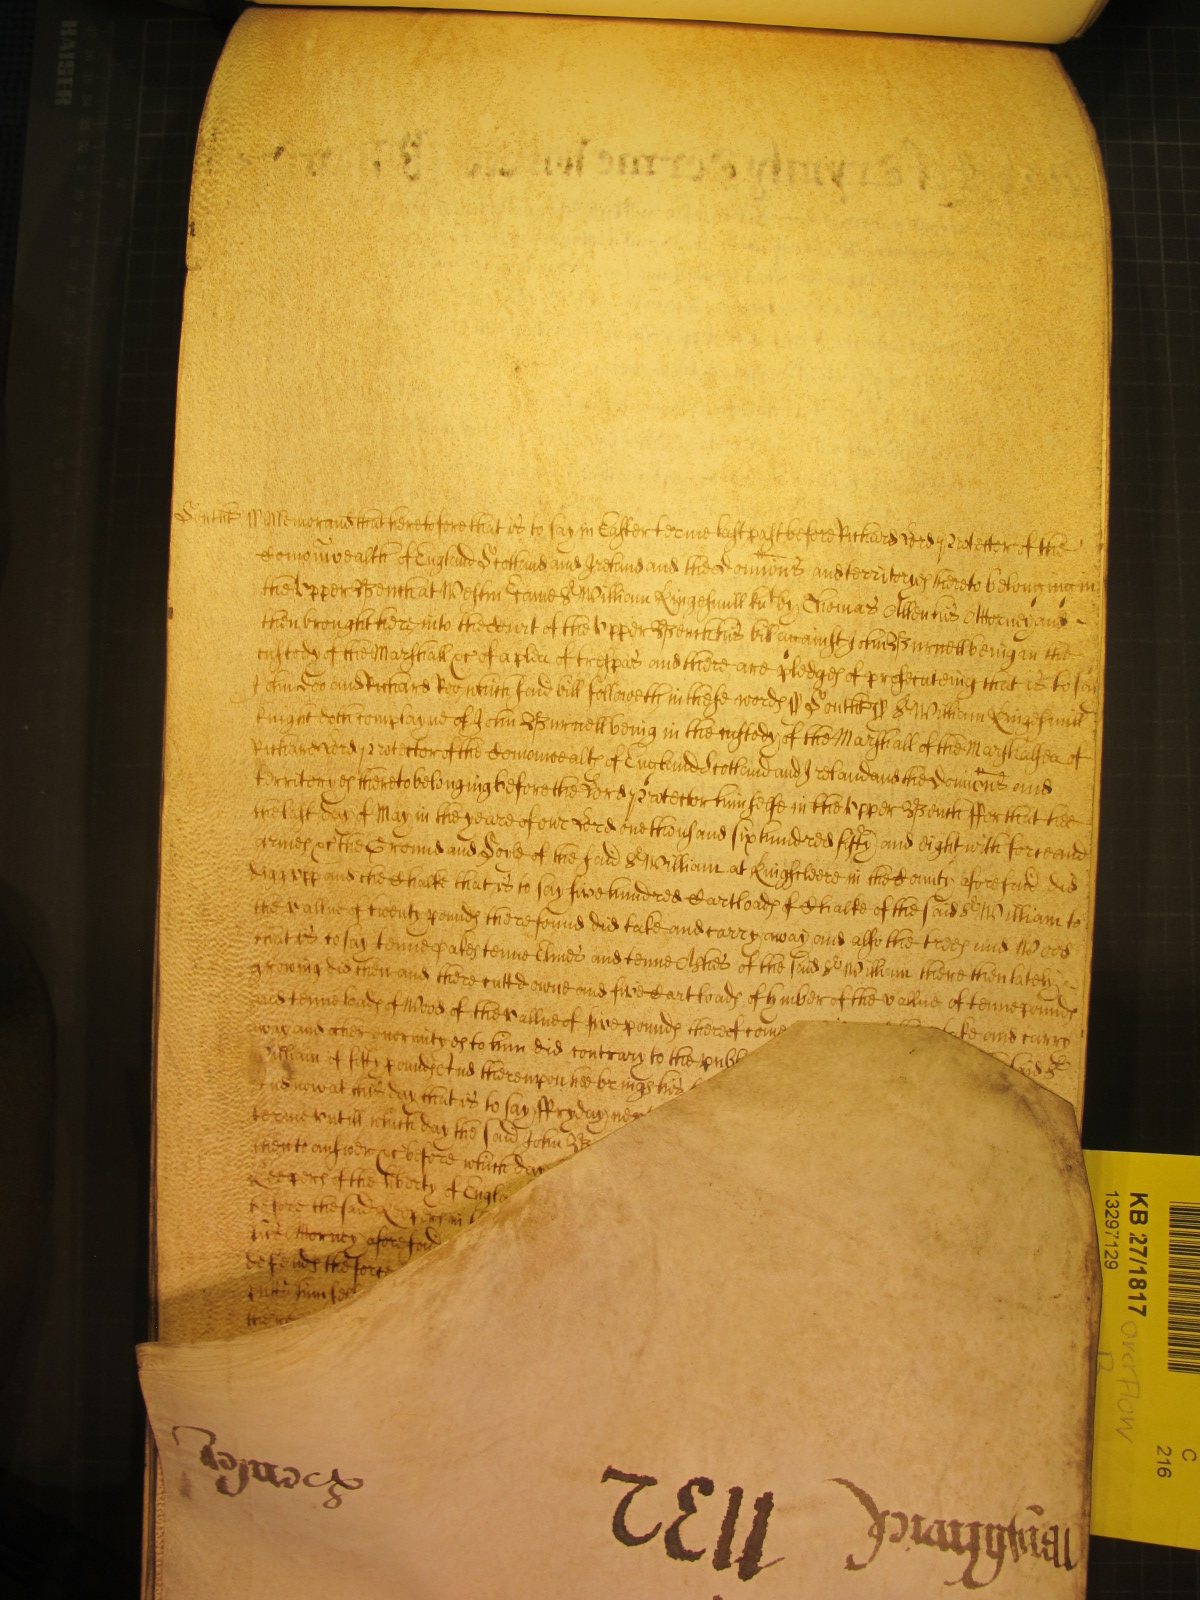 Southt ss Memorand that heretofore that is to say in Easter terme last past before Richard Lord Protector of the
Comonwealth of England Scotland and Ireland and the Dominions and territoryes thereto belonging in
the Upper Bench at Westm Came Sr William Kingesmill knt by Thomas Allen his Attorney and
then brought here into the Court of the Upper Bench his bill against John Burnell being in the
custody of the Marshall &c of a plea of trespas and there are pledges of prosecuteing that is to say
John Doo and Richard Roo which said bill followeth in these words ss Southt ss Sr William Kingesmill
knight doth complayne of John Burnell being in the custody of the Marshall of the Marshalsea of
Richard Lord Protector of the Comonwealth of England Scotland and Ireland and the Dominions and
territoryes thereto belonging before the Lord Protector himselfe in the Upper Bench ffor that hee
the last day of May in the yeare of our Lord one thousand six hundred fifty and eight with force and
armes &c the Ground and Soyle of the said Sr William at Kingscleere in the County aforesaid did
digg upp and the Chalke that is to say five hundred Cartloads of Chalke of the said Sr William to
the vallue of twenty pounds there found did take and carry away and also the trees and Wood
that is to say tenne Oakes tenne Elmes and tenne Ashes of the said Sr William there then lately
growing did then and there cutt downe and five Cartloads of tymber of the vallue of tenne pounds
and tenne loads of Wood of the vallue of five pounds thereof come take and carry
away and other enormityes to him did contrary to the publ said Sr
William of fifty pounds And thereupon hee brings his
And now at this day that is to say ffryday next
terme untill which day the said John B
then to answer &c before which day
Keepers of the liberty of Engla
before the said Keepers at
his Attorney aforesaid
defends the force
putts himself
there
KB 27/1817
13297129
overflow
C
216
1132